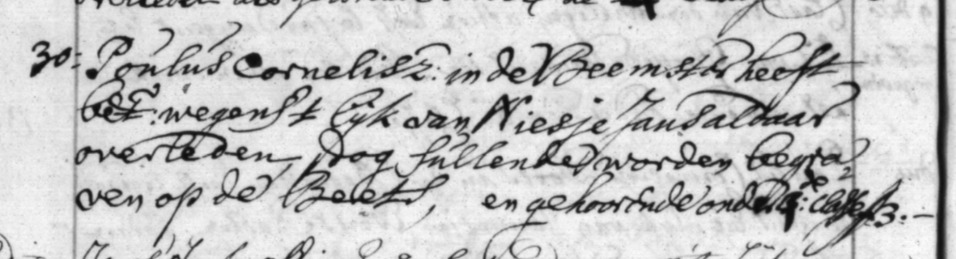 30: Poulus Cornelisz: in de Beemster heeft
bet: wegens t lijk van Niesje Jans aldaar
overleden, dog sullende worden begra
ven op de Beets, en gehoorende onder de classe ƒ3.-